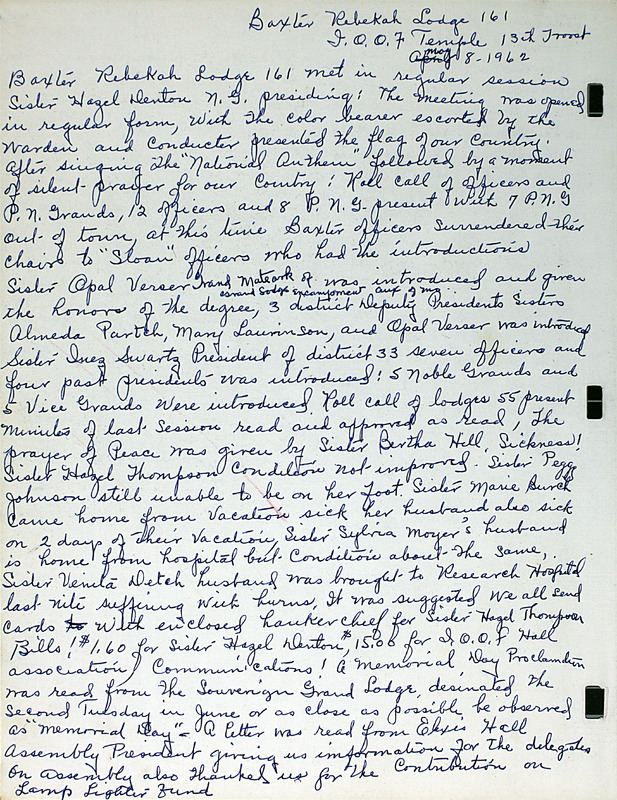 Baxter Rebekah Lodge 161
I.O.O.F Temple 13th Troost
May 8-1962
Baxter Rebekah Lodge 161 met in regular session
Sister Hazel Denton N.G. presiding! The meeting was opened
in regular form, with the color bearer escorted by the
Warden and Conducter presented the flag of our Country.
After singing the "National Anthem" followed by a moment
of silent-prayer for our Country! Roll call of officers and
P.N. Grands, 12 officers and 8 P.N.G. present with 7 P.N.G
out of town, at this time Baxter officers surrendered their
chairs to "Sloan" officers who had the introductions
Sister Opal Verser Grand of was introduced and given
Grand Lodge Encampment aux of mo
the honors of the degree, 3 district Deputy Presidents Sisters
Almeda Partch, Mary Laurinson, and Opal Verser was introduced
Sister Inez Swartz President of district 33 seven officers and
four past presidents was introduced! 5 Noble Grands and
5 Vice Grands were introduced. Roll call of lodges 55 present
Minutes of last Session read and approved as read, The
prayer of Peace was given by Sister Bertha Hill. Sickness!
Sister Hazel Thompson Condition not improved. Sister Peggy
Johnson still unable to be on her foot. Sister Marie Burch
Came home from vacation sick her husband also sick
on 2 days of their vacation, Sister Sylvia Moyer's husband
is home from hospital but Condition about the same,
Sister Venita Detch husband was brought to Research Hospital
last nite suffing with burns. It was suggested we all send
cards with enclosed hankerchief for Sister Hazel Thompson
Bills! $1.60 for Sister Hazel Denton, $15.00 for I.O.O.F Hall
association, Communications! A Memorial Day Proclamtion
was read from the Souverign Grand Lodge, desinated the
Second Tuesday in June or as close as possible be observed
as "Memorial Day" = A letter was read from Hall
Assembly President giving us imformation for the delegates
On assembly also thanked us for the Contribution on
Lamp Lighter Fund